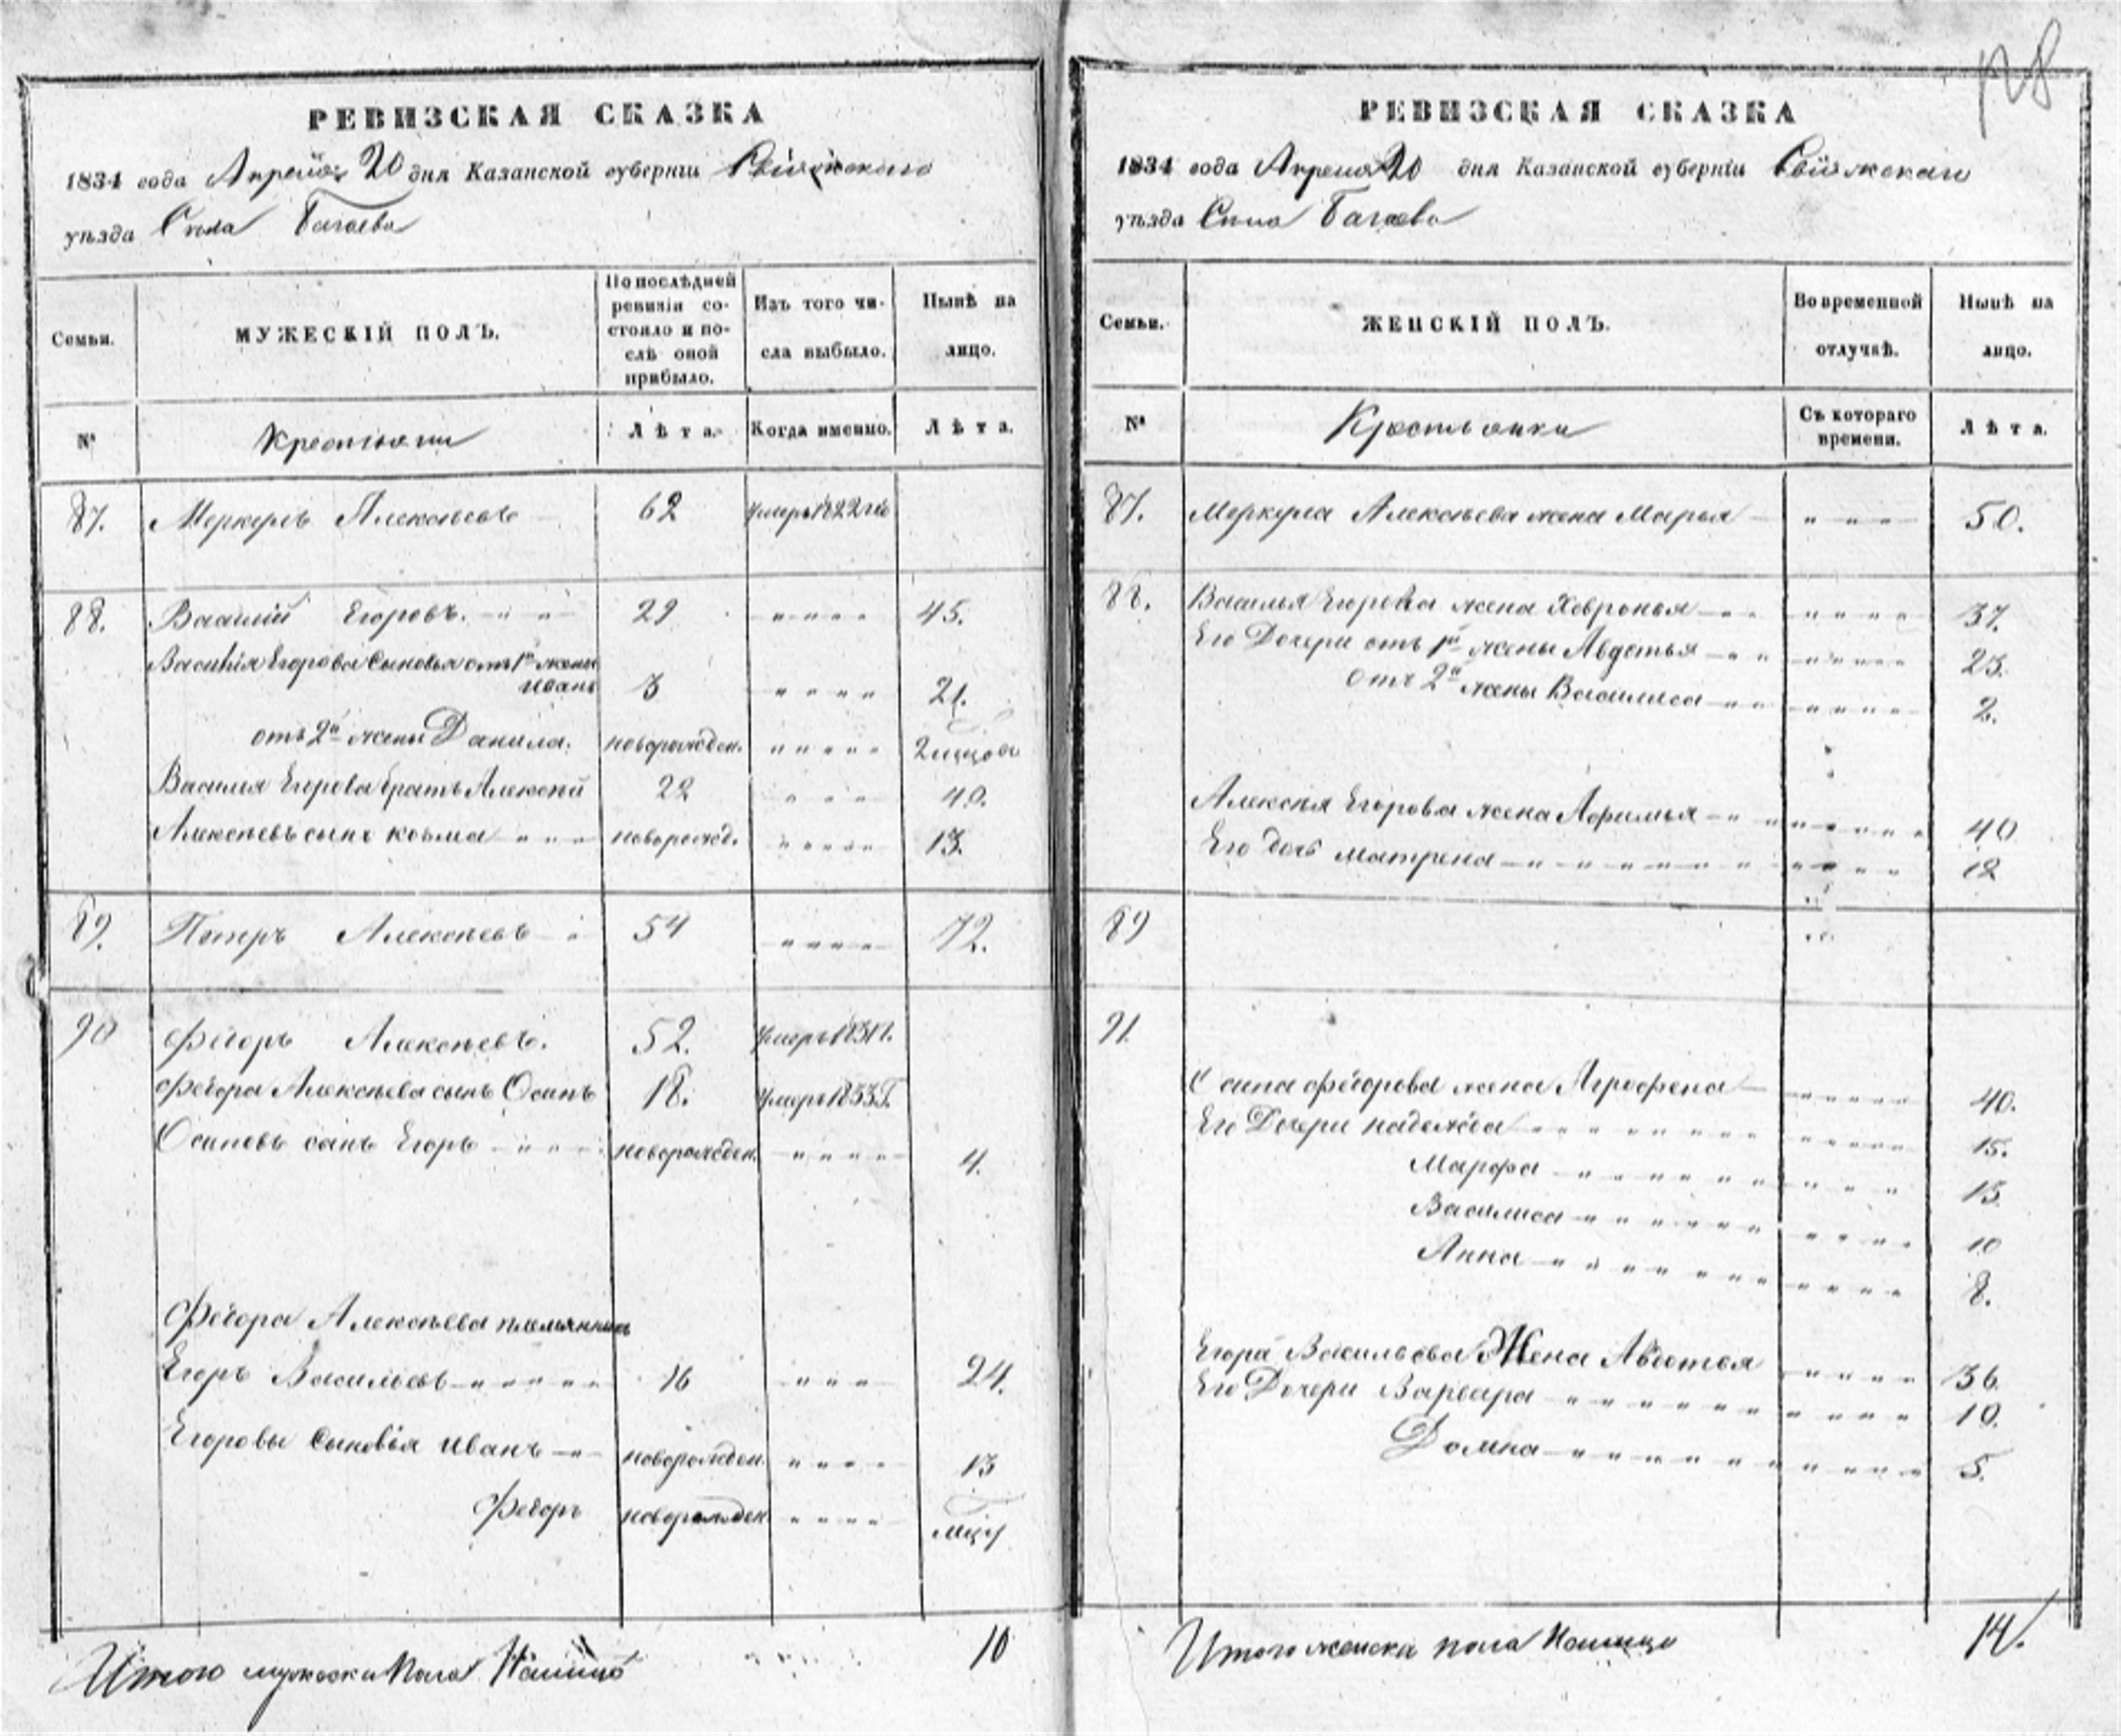 128
РЕВИЗСКАЯ СКАЗКА
1834 года Апреля 20 дня Казанской губерніи Свіяжскаго
уѣзда Села Багаева
Семьи.
МУЖЕСКІЙ ПОЛЪ.
По послѣдней ревизіи состояло и послѣ оной прибыло.
Изъ того числа выбыло.
Нынѣ на лицо.
№
Крестьяни
Лѣта.
Когда именно.
Лѣта.
87. Меркулъ Алексѣевъ 62 умеръ 1822 го
88. Василій Егоровъ. 29 45.
Василія Егорова Сыновья отъ 1й жены
Иванъ 3 21.
отъ 2й жены Данила. новорожден. 2
Василия Егорова братъ Алексѣй 22 40.
Алексѣевъ сынъ козма новорожд. 13.
89. Петръ Алексѣевъ 54 72.
90 Федоръ Алексѣевъ. 52. умеръ 1831 г.
Федора Алексѣева сынъ Осипъ 18. умеръ 1833 Г.
Осиповъ сынъ Егоръ новорожден. 4.
Федора Алексѣева племянникъ
Егоръ Васильевъ 16 24.
Егоровы Сыновія Иванъ новорожден. 13
Федоръ новорожден
Итого мужеска Пола Налицо 10
РЕВИЗСКАЯ СКАЗКА
1834 года Апреля 20 дня Казанской губерніи Свіяжскаго
уѣзда Села Багаева
Семьи.
ЖЕНСКІЙ ПОЛЪ.
Во временной отлучкѣ.
Нынѣ на лицо.
№
Крестьянки
Съ котораго времени.
Лѣта.
87. Меркула Алексѣева жена Марья 50.
88. Василья Егорова жена Ховронья 37.
Его Дочери отъ 1й жены Авдотья 23.
отъ 2й жены Василиса 2.
Алексѣя Егорова жена Афимья 40
Его дочь матрена 12
89
91
Осипа Федорова жена Агрофена 40.
Его Дочери надежда 15.
Марфа 13.
Василиса 10
Анна 8.
Егора Васильева Жена Авдотья 36.
Его Дочери Варвара 10.
Домна 5.
Итого женска пола Налицо 14.